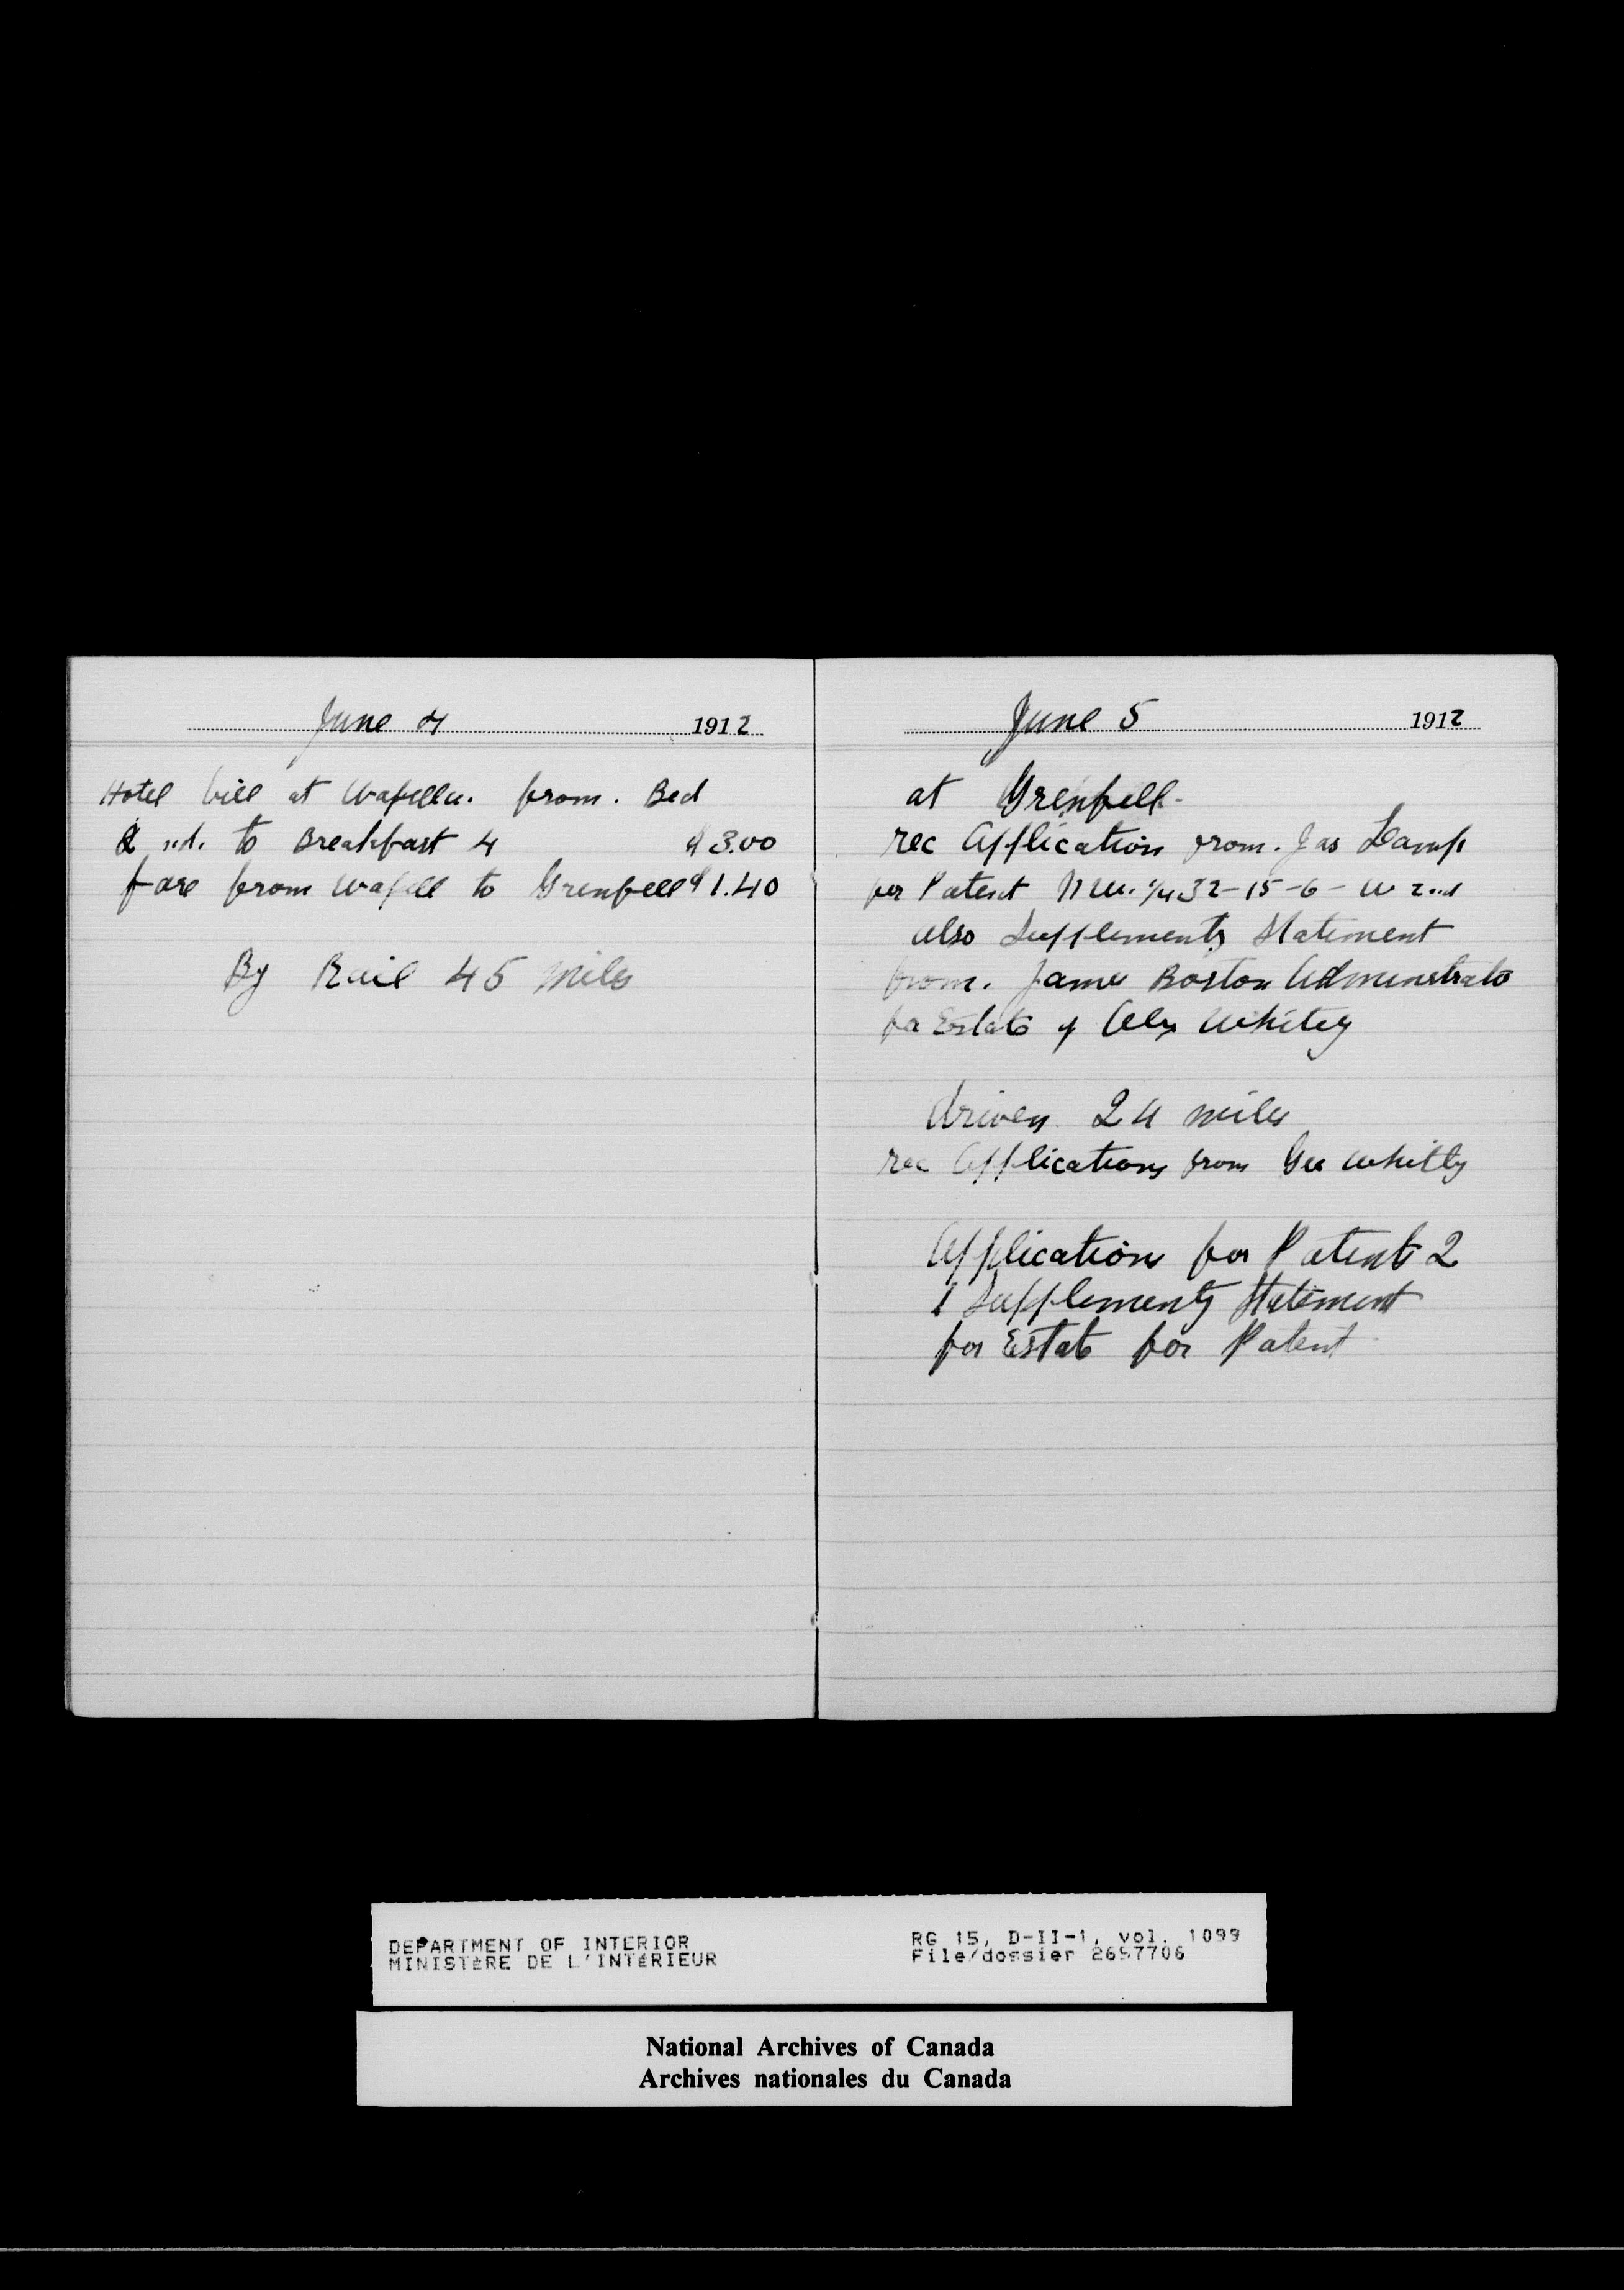 June 4 1912
Hotel bill at Wapella. from. Bed
2 nd. to Breakfast 4 $3.00
fare from Wapell to Grenfell $1.40
By Rail 45 miles
June 5 1912
at Grenfell-
rec Application from. Jas Lamp
for Patent N W. 1/4 32-15-6- W 2nd
also Supplementy Statement
from. James Boston Administrato
for Estate of Alex Whitey
driven 24 miles
rec Applications from Geo Whitty
Applications for Patents 2
1 Supplementy Statement
for Estate for Patent
DEPARTMENT OF INTERIOR
MINISTÈRE DE L'INTÉRIEUR
RG 15, D-II-1, vol. 1099
File/dossier 2657706
National Archives of Canada
Archives nationales du Canada